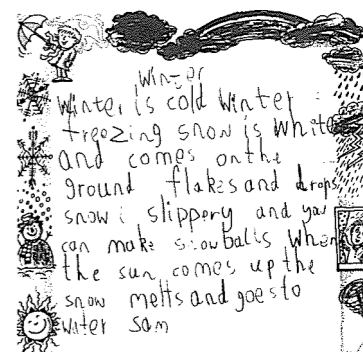 Winter
Winter is cold Winter is
freezing snow is White
and comes on the
ground flakes and drops
snow is slippery and you
can make snowballs When
the sun comes up the
snow melts and goes to
water Sam